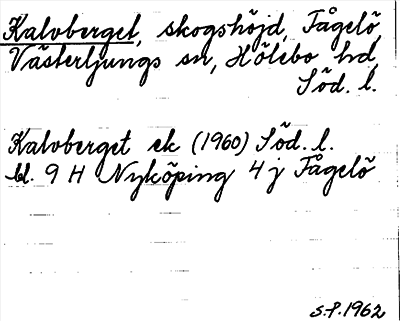 Kalvberget, skogshöjd, Fågelö,
Västerljungs sn, Hölebo hd,
Söd. l.
Kalvberget ek (1960) Söd. l.
bl. 9 H Nyköping 4 j Fågelö
S.P. 1962